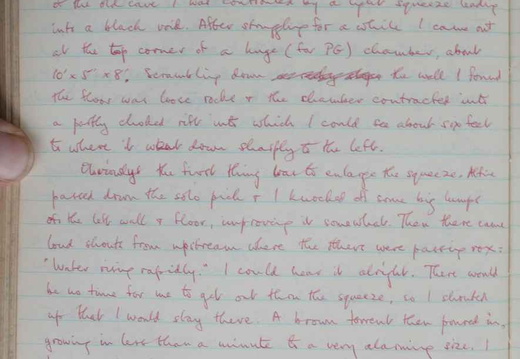 of the old cave I was confronted by a tight squeeze leading
into a black void. After struggling for a while I came out
at the top corner of a huge (for PG) chamber, about
10' x 5' x 8'. Scrambling down the wall I found
the floor was loose rocks & the chamber contracted into
a partly choked rift into which I could see about six feet
to where it went down sharply to the left.
Obviously the first thing was to enlarge the squeeze. Alfie
passed down the solo pick & I knocked off some big lumps
off the left wall & floor, improving it somewhat. Then there came
loud shouts from upstream where the others were passing rox:
"Water rising rapidly." I could hear it alright. There would
be no time for me to get out thru the squeeze, so I shouted
up that I would stay there. A brown torrent then poured in,
growing in less than a minute to a very alarming size. I